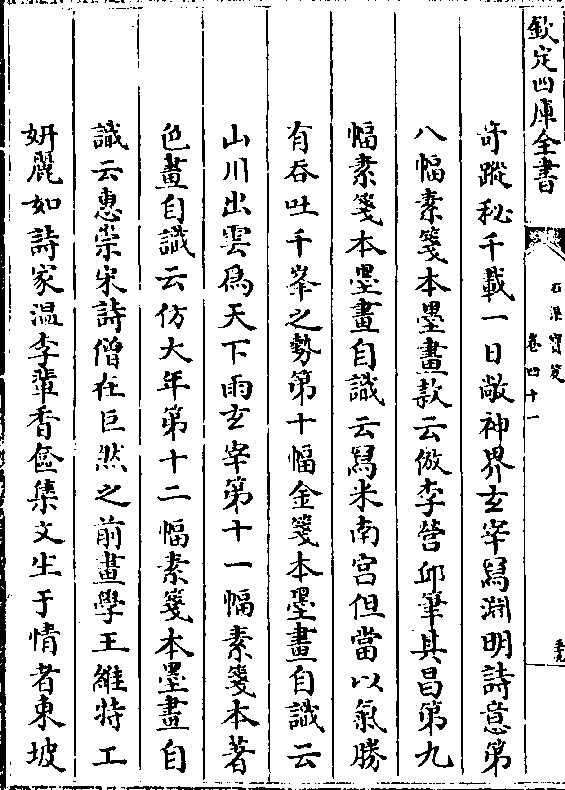 欽定四庫全書
石渠寶笈
卷四十一
奇蹤秘千載一日敞神界玄宰寫淵明詩意第
八幅素箋本墨畫款云倣李營邱筆其昌第九
幅素箋本墨畫自識云寫米南宮但當以氣勝
有吞吐千峯之勢第十幅金箋本墨畫自識云
山川出雲爲天下雨玄宰第十一幅素箋本著
色畫自識云仿大年第十二幅素箋本墨畫自
識云惠崇宋詩僧在巨然之前畫學王維特工
妍麗如詩家温李輩香奩集文生于情者東坡